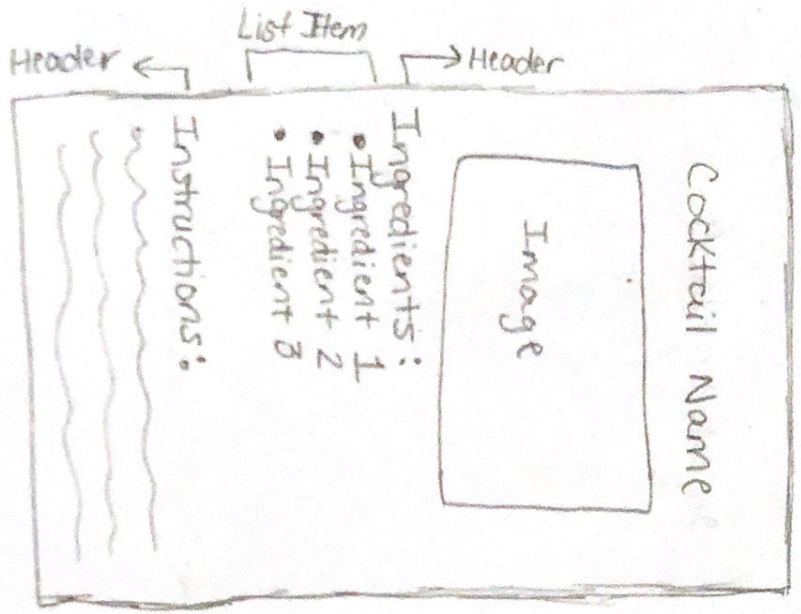 Header
List Item
Header
Cocktail Name
Image
Ingredients:
• Ingredient 1
• Ingredient 2
• Ingredient 3
Instructions: